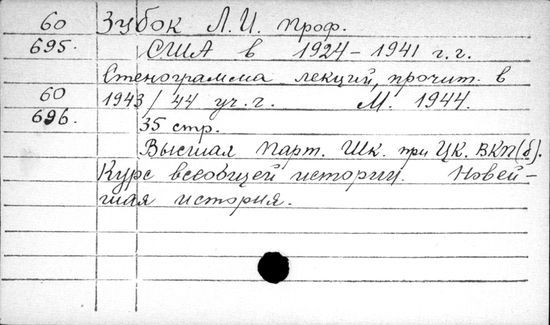 60 Зубок Л.И. проф.
695. США в 1924-1941 г.г.
Стенограмма лекций, прочит. в
60 1943/44 уч.г. М. 1944.
696. 35 стр.
Высшая Парт. Шк. при ЦК. ВКП(б).
Курс всеобщей истории. Новей-
шая история.